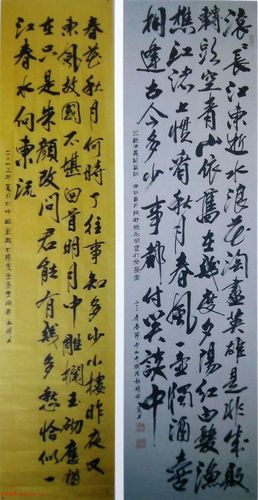 滚滚長江東逝水浪花淘盡英雄是非成敗
轉頭空青山依舊在幾度夕陽紅白髮漁
樵江渚上慣看秋月春風一壺濁酒喜
相逢古今多少事都付笑談中
春花秋月何時了往事知多少小樓昨夜又
東風故國不堪回首明月中雕欄玉砌應猶
在只是朱顏改問君能有幾多愁恰似一
江春水向東流